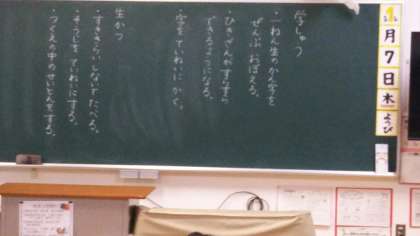 1月7日木ようび
学しゅう
・一ねん生のかん字を
ぜんぶ おぼえる。
・ひきざんがすらすら
できるようになる。
・字をていねいに かく。
生かつ
・すききらいしないでたべる。
・そうじをていねいにする。
・つくえの中のせいとんをする。